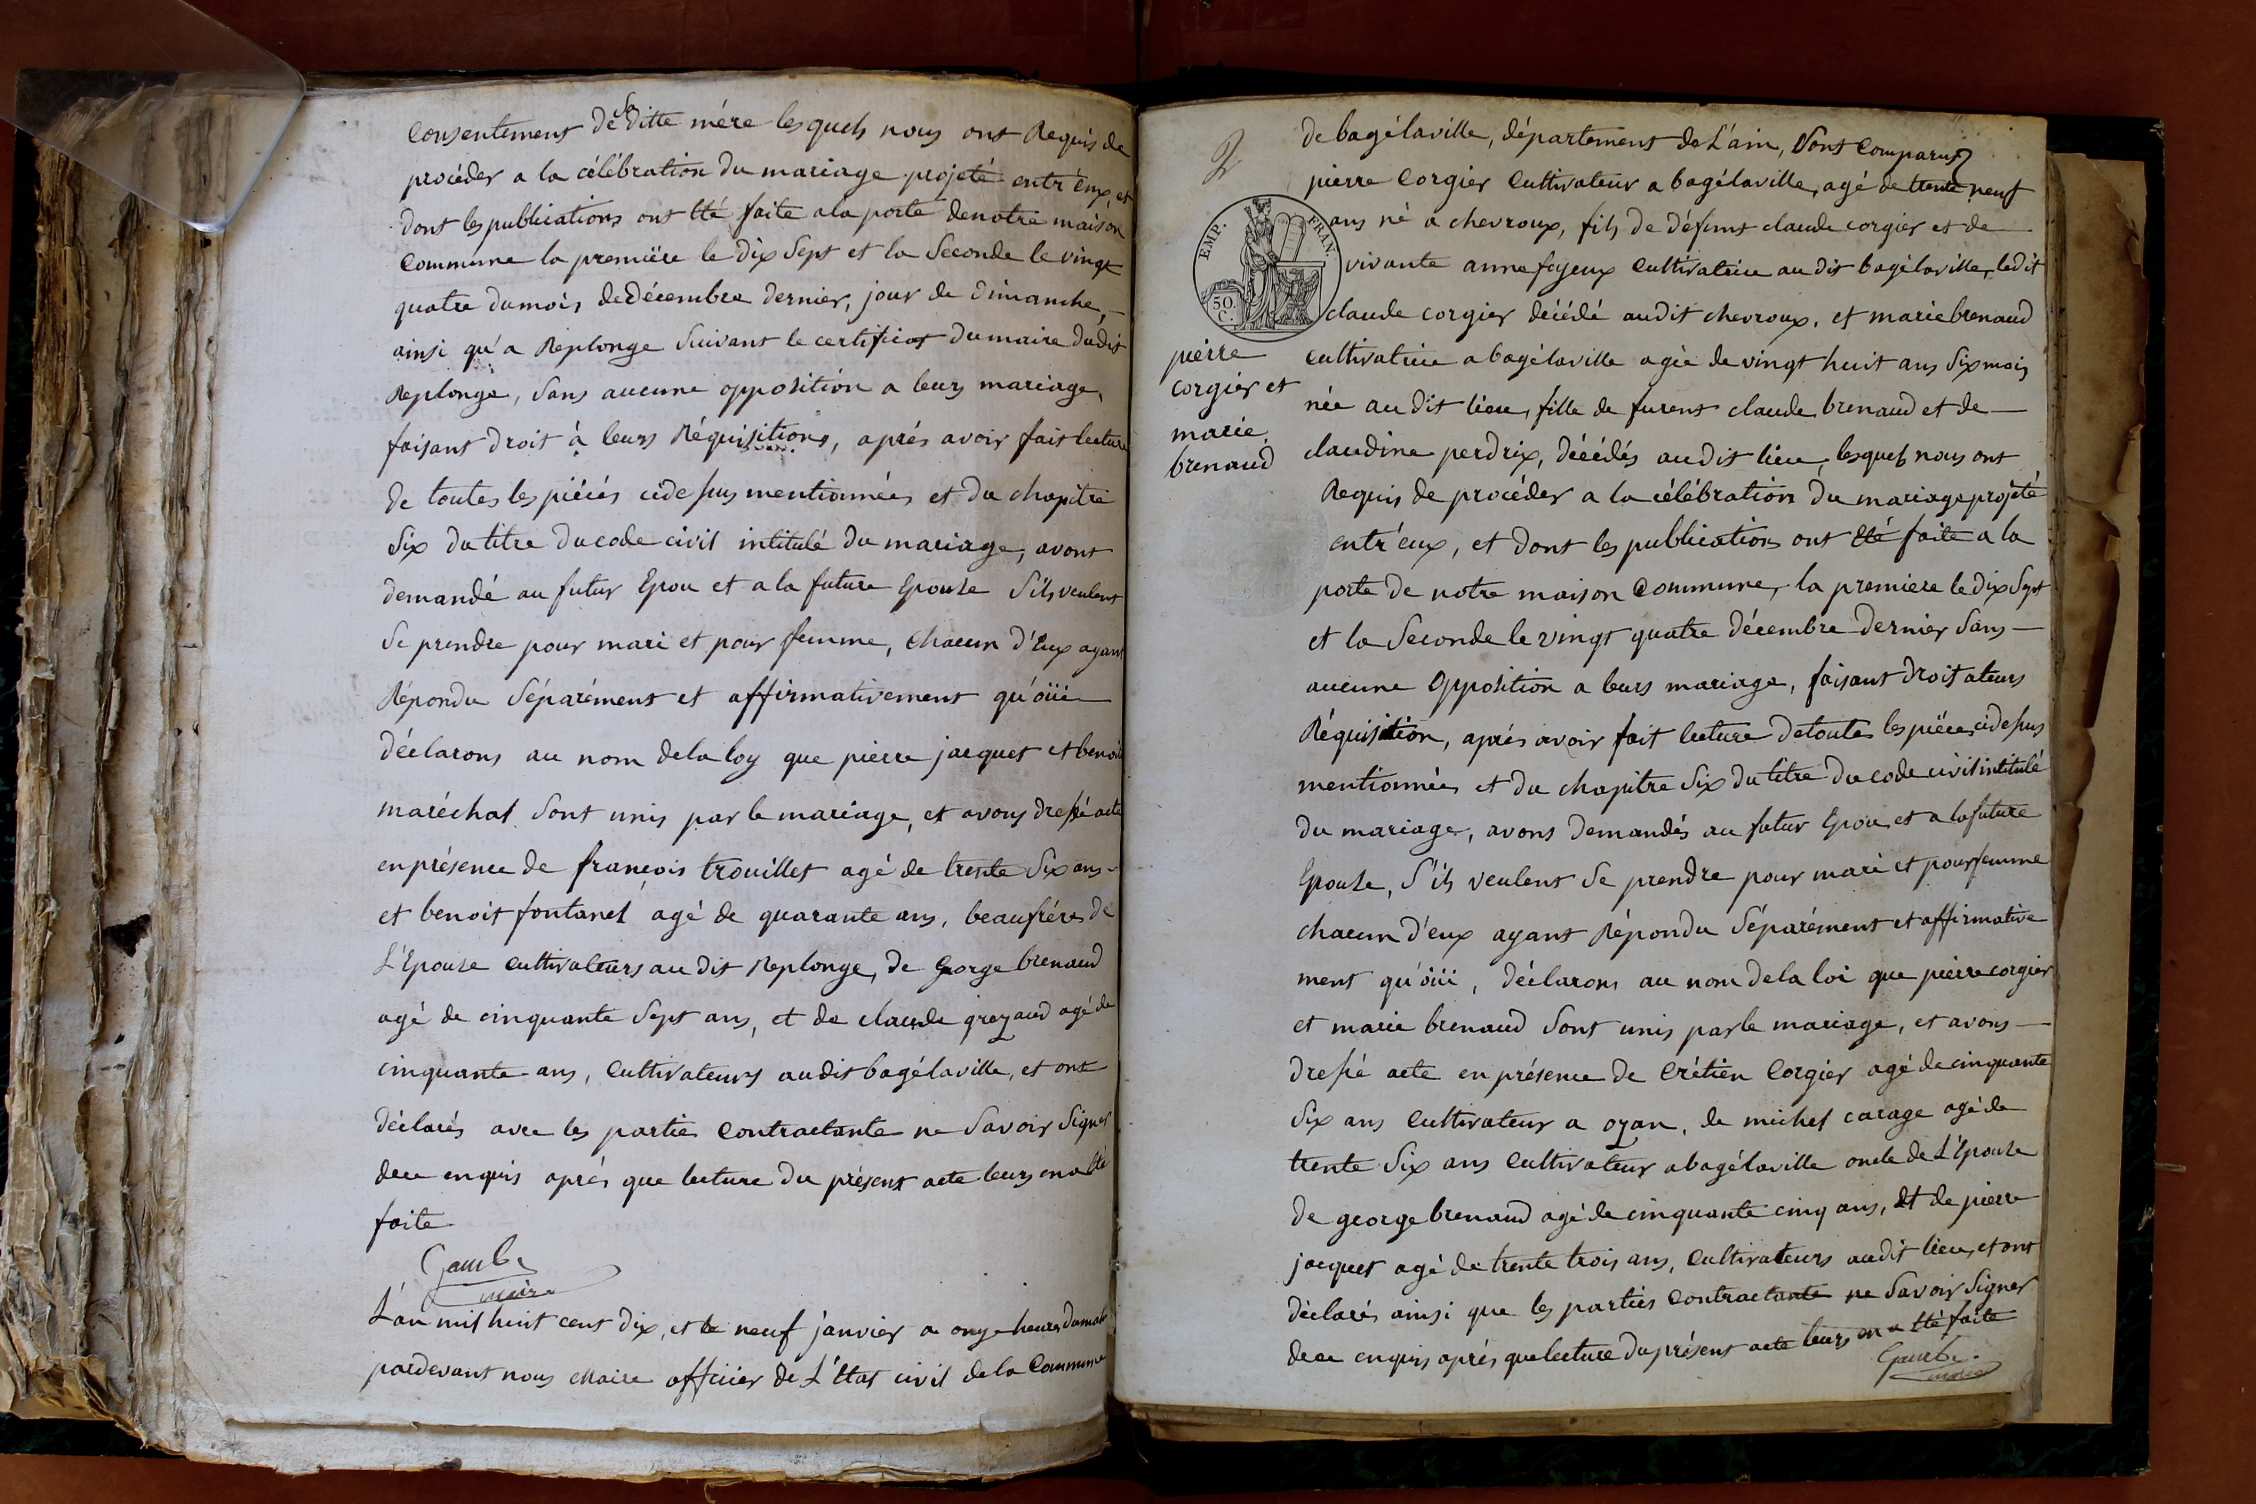 consentement de sa ditte mére lesquels nous ont Requis de
procéder a la célébration du mariage projeté entr'eux, et
dont les publications ont tté faite a la porte de notre maison
Commune la premiére le dix Sept et la Seconde le vingt
quatre du mois de décembre dernier, jour de dimanche,
ainsi qu'a Replonge Suivant le certificat du maire dudit
Replonge, Sans aucune opposition a leurs mariage,
faisant droit à leurs Réquisitions, aprés avoir fait lecture
de toutes les piéces cidessus mentionnées et du chapitre
Six du titre du code civil intitulé du mariage, avont
demandé au futur Epou et a la future Epouse S'ils veulent
Se prendre pour mari et pour femme, chacun d'Eux ayant
Répondu Séparément et affirmativement qu'oüi
déclarons au nom de la loy que pierre jacquet et benoite
maréchal Sont unis par le mariage, et avons dressé acte
en présence de françois trouillet agé de trente Six ans
et benoit fontanel agé de quarante ans, beaufrére de
L'Epouse Cultivateurs au dit Replonge, de George brenaud
agé de cinquante Sept ans, et de claude grezaud agé de
cinquante ans, Cultivateurs audit bagélaville, et ont
déclarés avec les partie Contractante ne Savoir Signer
de ce enquis aprés que lecture du présent acte leurs en a tté
faite
Gambe
maire
L'an mil huit cent dix, et le neuf janvier a onze heures du matin
pardevant nous Maire officier de L'Etat civil de la Commune
de bagélaville, département de L'ain, Sont Comparus
pierre Corgier Cultivateur a bagélaville, agé de trente neuf
ans né a chevroux, fils de défunt claude corgier et de
vivante anne fayeux Cultivatrice au dit bagélaville, ledit
claude corgier décédé audit chevroux, et marie brenaud
cultivatrice a bagélaville agée de vingt huit ans Six mois
née au dit lieu, fille de furent claude brenaud et de
claudine perdrix, décédés audit lieu, lesquels nous ont
Requis de procéder a la célébration du mariage projeté
entr'eux, et dont les publications ont tté faite a la
porte de notre maison Commune, la premiere le dix Sept
et la Seconde le vingt quatre décembre dernier Sans
aucune Opposition a leurs mariage, faisant droit a leurs
Réquisition, aprés avoir fait lecture de toutes les piéces cidessus
mentionnées et du chapitre Six du titre du code civil intitulé
du mariage, avons demandés au futur Epou et a la future
Epouse, S'ils veulent Se prendre pour mari et pour femme
chacun d'eux ayant Répondu Séparément et affirmative
ment qu'oüi, déclarons au nom de la loi que pierre corgier
et marie brenaud Sont unis par le mariage, et avons
dressé acte en présence de Crétien Corgier agé de cinquante
Six ans Cultivateur a ozan, de michel carage agé de
trente Six ans Cultivateur a bagélaville oncle de L'Epouse
de george brenaud agé de cinquante cinq ans, et de pierre
jacquet agé de trente trois ans, Cultivateurs audit lieu, et ont
déclarés ainsi que les parties Contractante ne Savoir Signer
de ce enquis aprés que lecture du présent acte leurs en a tté faite
Gambe
maire
EMP. FRAN.
50.
C.
pierre
corgier et
marie
brenaud